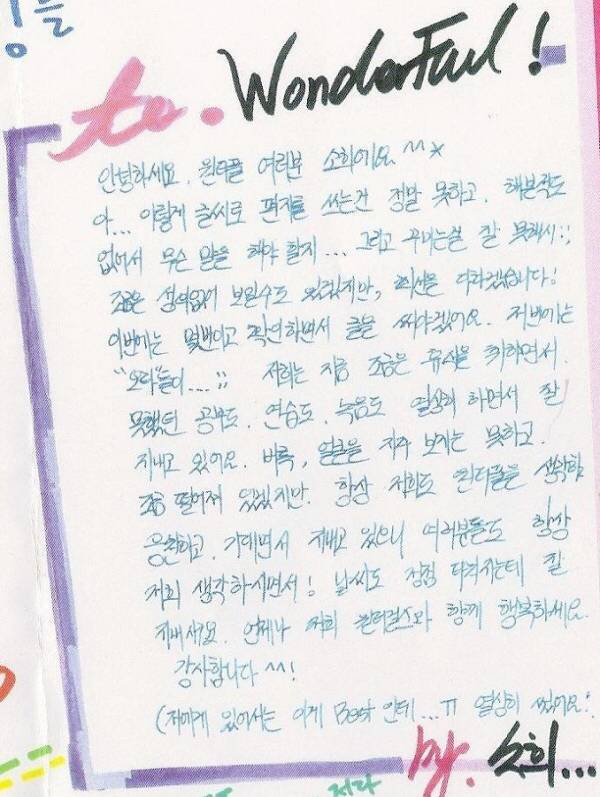 to. WonderFul!
안녕하세요. 원더풀 여러분 소희에요 ^^*
아... 이렇게 글씨로 편지를 쓰는건 정말 못하고. 해본적도
없어서 무슨 말을 해야 할지... 그리고 꾸미는걸 잘 못해서;;
조금은 성의없어 보일수도 있겠지만, 최선을 다하겠습니다!
이번에는 몇번이고 확인하면서 글을 써야겠어요. 저번에는
"오타"들이....;; 저희는 지금 조금은 휴식을 취하면서.
못했던 공부도. 연습도. 녹음도 열심히 하면서 잘
지내고 있어요. 비록, 얼굴을 자주 보지는 못하고.
조금 떨어져 있겠지만. 항상 저희도 원더풀을 생각하
응원하고. 기대면서 지내고 있으니 여러분들도 항상
저희 생각하시면서! 날씨도 점점 더워지는데 잘
지내세요. 언제나 저희 원더걸스와 함께 행복하세요.
감사합니다 ^^!
(저에게 있어서는 이게 Best 인데...ㅠ 열심히 썼어요:
by. 소희...